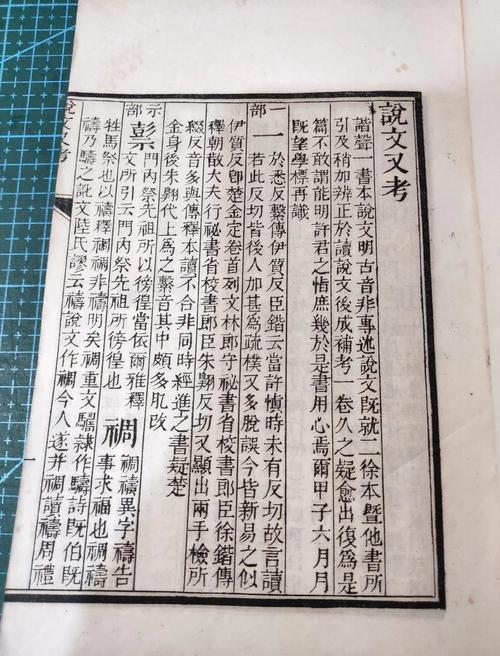 說文又考
諧聲一書本說文明古音非專述說文旣就二徐本暨他書所
引及稍加辨正於讀說文後成補考一卷久之疑愈出復為是
篇不敢謂能明許君之恉庶幾於是書用心焉爾甲子六月月
旣望學標再識
一部
一
於悉反繫傳伊質反臣鍇云當許慎時未有反切故言讀
若此反切皆後人加甚為疏樸又多脫誤今皆新易之似
伊質反卽楚金定卷首列文林郎守祕書省校書郎臣徐鍇傳
釋朝散大夫行祕書省校書郎臣朱翱反切又顯出兩手檢所
綴反音多與傳釋本讀不合非同時經進之書疑楚
金身後朱翱代上為之繫音其中頗多改
示部
門內祭先祖所以徬徨當依爾雅釋
文所引云門內祭先祖所徬徨也
禂
禂禱異字禱告
事求福也禂禱
牲馬祭也以禱釋禂禂非禱明矣禂重文隸作詩旣伯旣
禱乃之訛文陸氏謬云禱說文作禂今人遂并禂讀禱周禮
說文又考
一